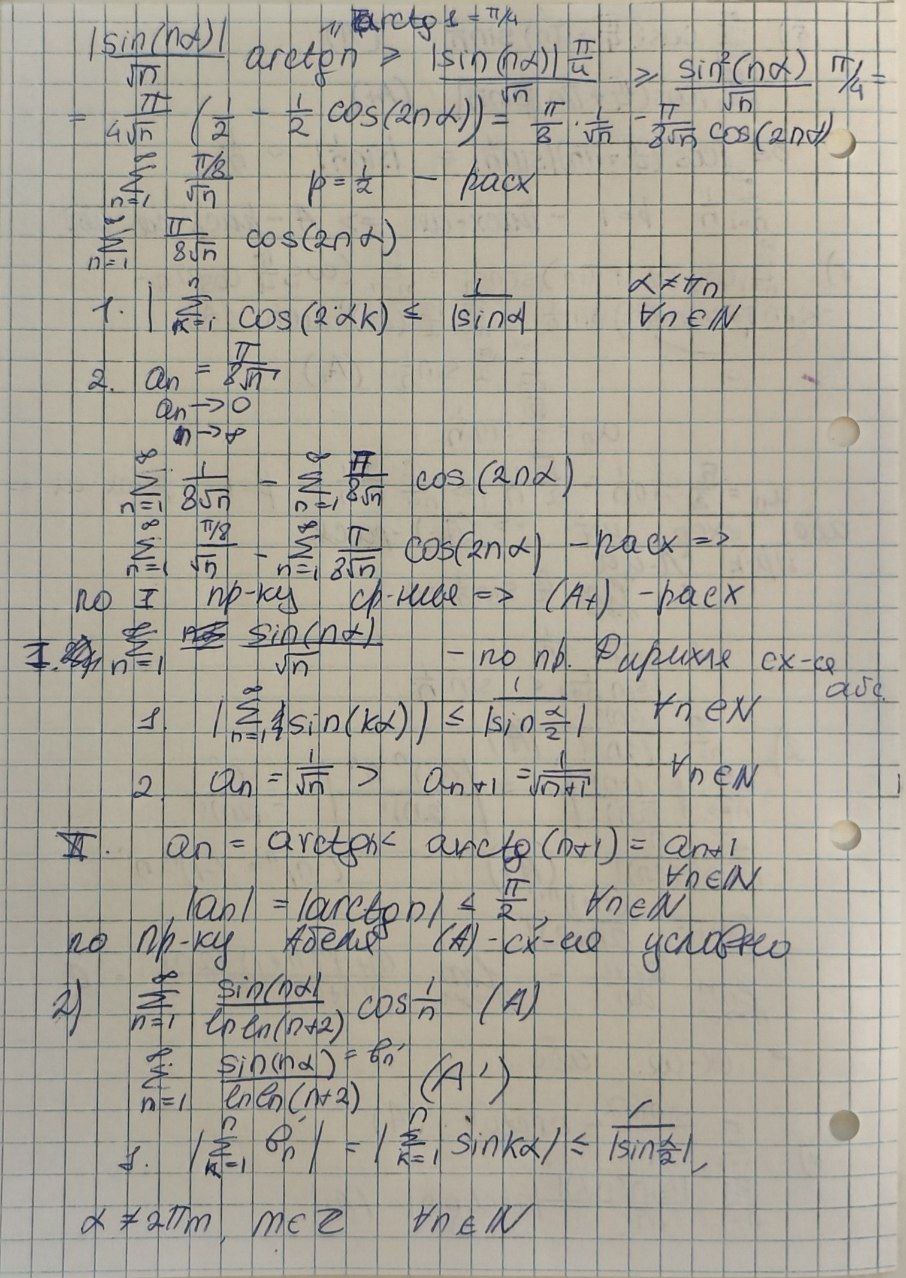 arctg 1 = π/4
|sin(nα)|/√n arctg n ≥ |sin(nα)|/√n π/4 ≥ sin²(nα)/√n π/4 =
= π/4√n (1/2 - 1/2 cos(2nα)) = π/8 · 1/√n - π/8√n cos(2nα)
∞∑n=1 π/8/√n p = 1/2 - расх
∞∑n=1 π/8√n cos(2nα)
1. |n∑k=1 cos(2αk) ≤ 1/|sinα| α ≠ πn ∀n∈N
2. an = π/8√n
an → 0
n → ∞
∞∑n=1 1/8√n - ∞∑n=1 π/8√n cos(2nα)
∞∑n=1 π/8/√n - ∞∑n=1 π/8√n cos(2nα) - расх =>
по I пр-ку ср-ния => (A+) - расх
I. ∞∑n=1 sin(nα)/√n - по пр. Дирихле сх-ся
абс.
1. |∞∑n=1 sin(kα)| ≤ 1/|sin α/2| ∀n∈N
2. an = 1/√n > an+1 = 1/√n+1 ∀n∈N
II. an = arctgn < arctg(n+1) = an+1
∀n∈N
|an| = |arctgn| ≤ π/2, ∀n∈N
по пр-ку Абеля (A) - сх-ся условно
2) ∞∑n=1 sin(nα)/ln ln(n+2) cos 1/n (A)
∞∑n=1 sin(nα) = bn'/ln ln(n+2) (A')
1. |n∑k=1 bn'| = |n∑k=1 sinkα| ≤ 1/|sin α/2|,
α ≠ 2πm, m∈Z ∀n∈N